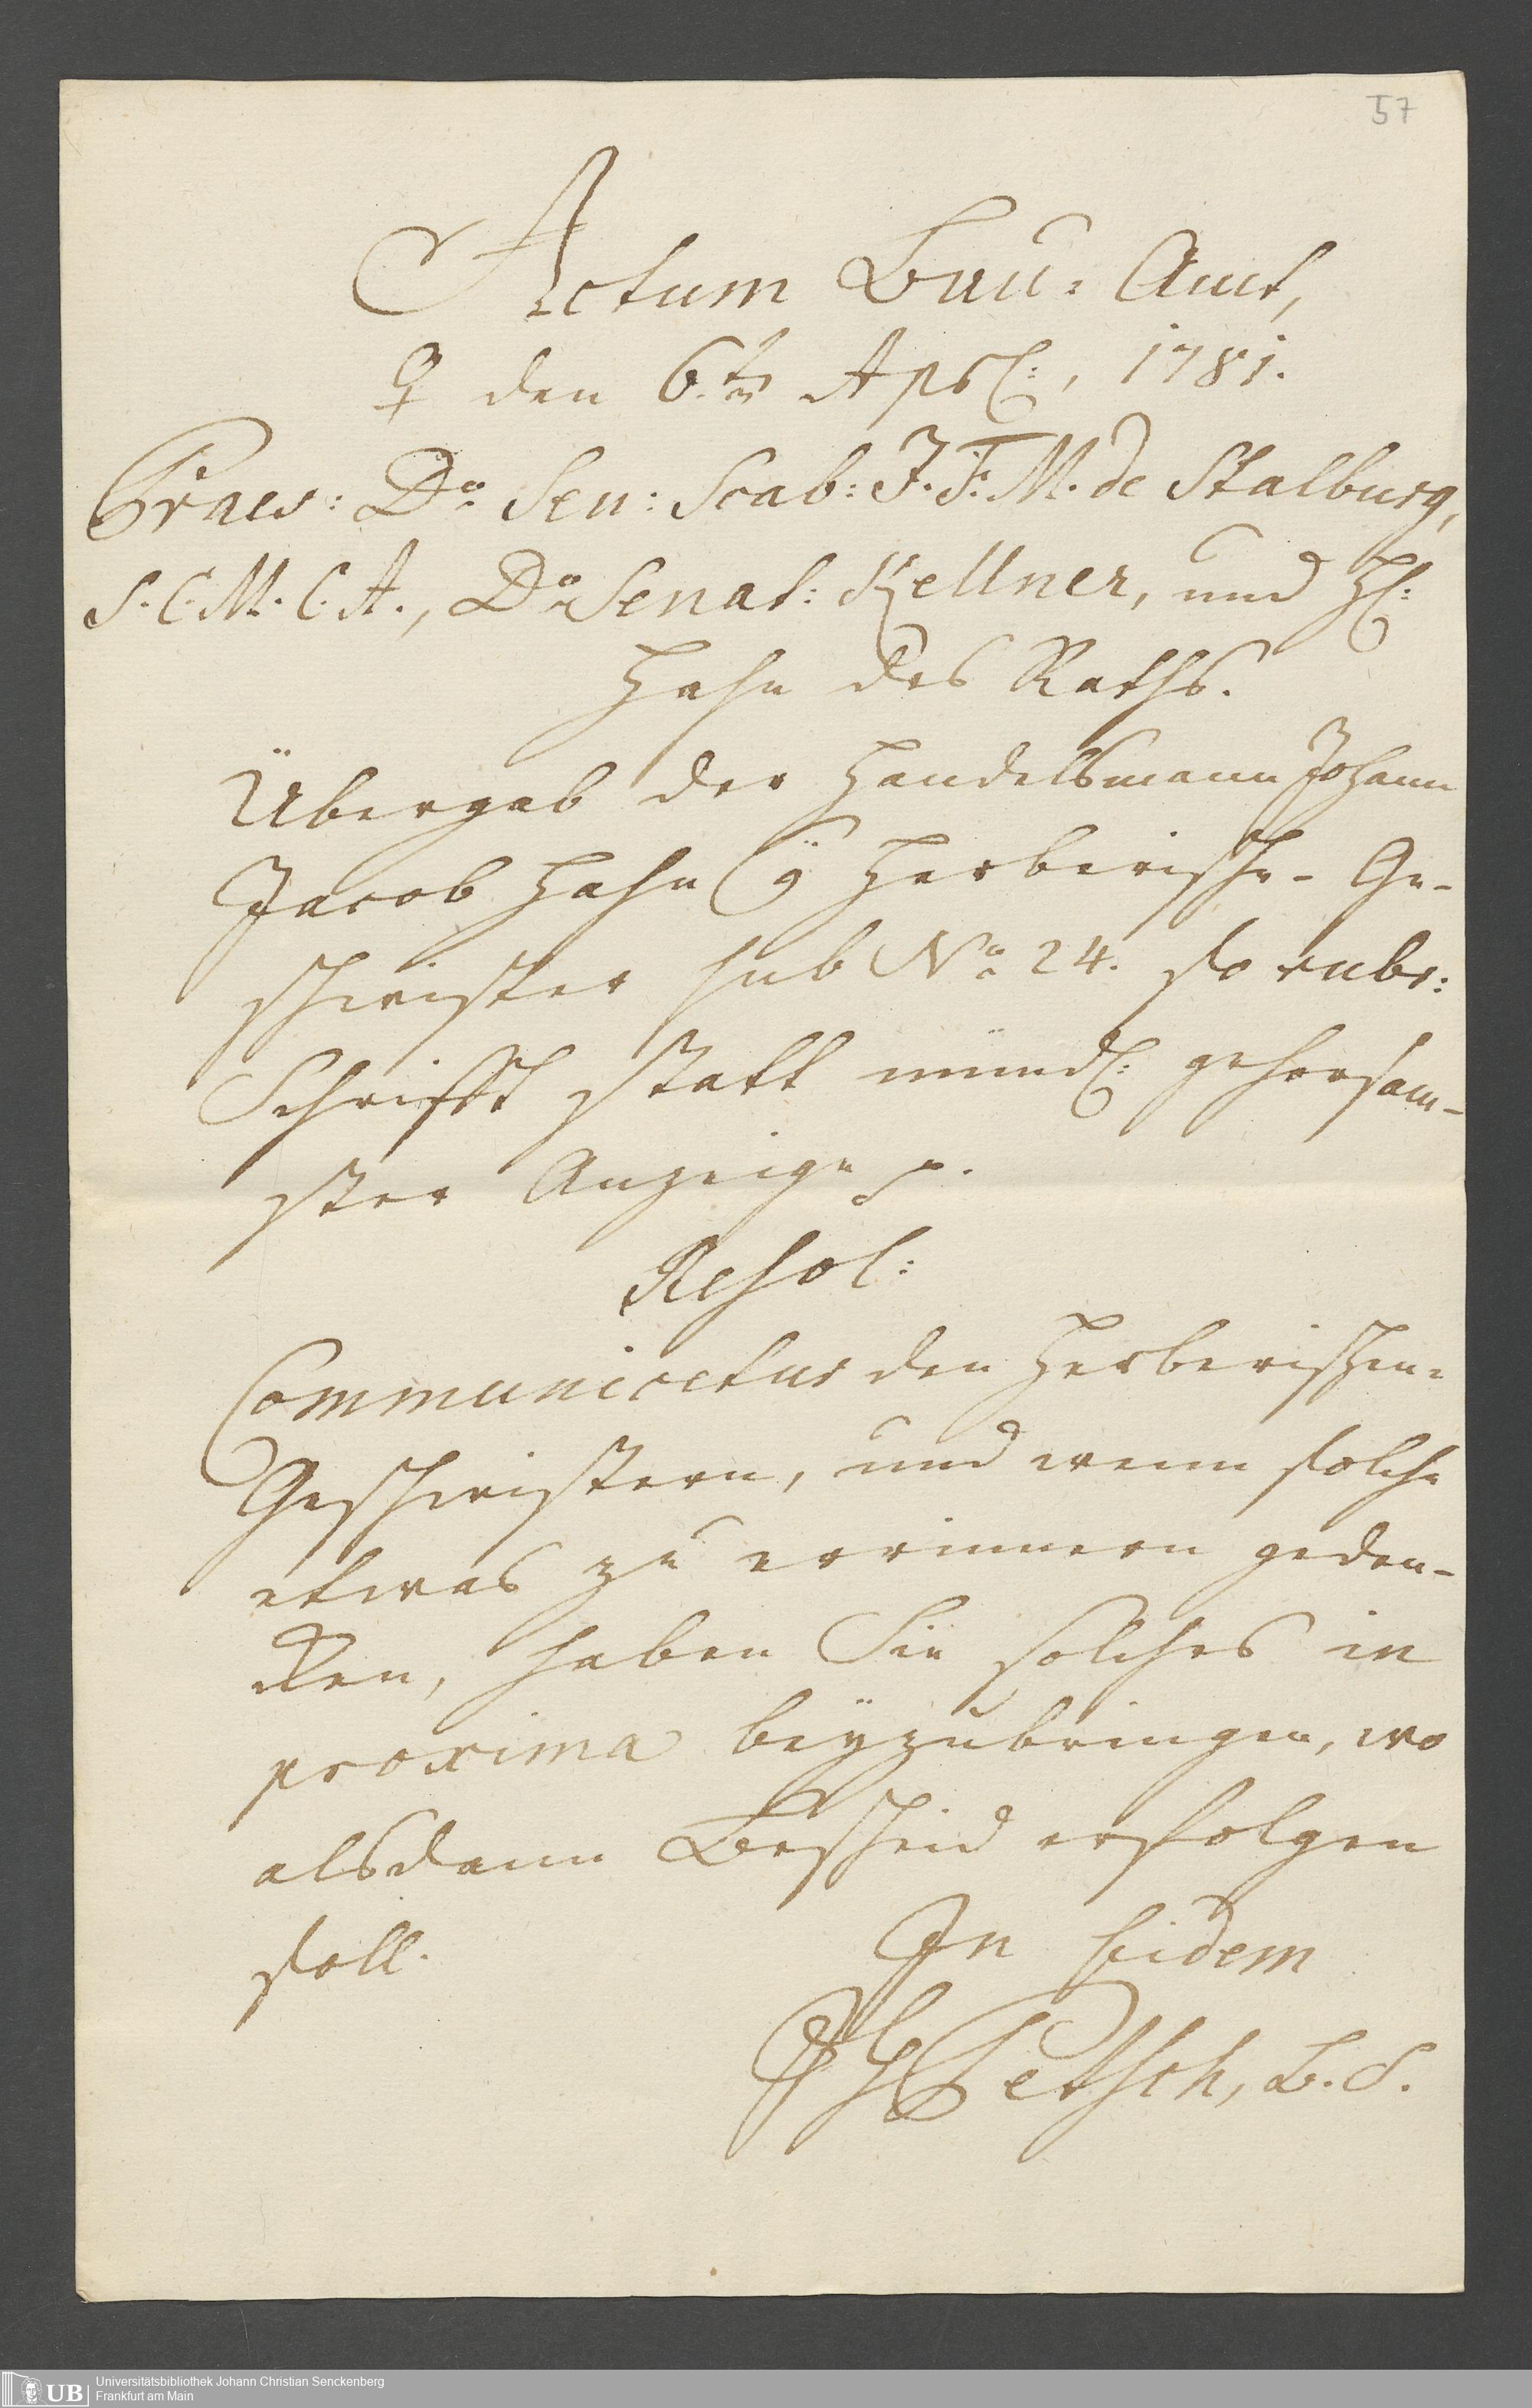 57
Actum Bau: Amt,
♀ den 6.ten Apríl:, 1781.
Praes: Do Sen: Scab: J. F. M. de Stalburg,
S. C. M. C. A., Do Senat: Kellner, und H:
Hahn des Raths.
Übergab der Handelsmann Johann
Jacob Hahn Ca Herberische- Ge-
schwister sub No 24. so rubr:
Schrifft statt mündl: gehorsam-
ster Anzeige p.
Resol:
Communicetur den Herberischen-
Geschwistern, und wenn solche
etwas zu errinnern geden-
cken, haben Sie solches in
proxima beyzubringen, wo
alsdann Bescheid erfolgen
soll.
In fidem
Petsch, B. S.
Universitätsbibliothek Johann Christian Senckenberg
Frankfurt am Main
UB